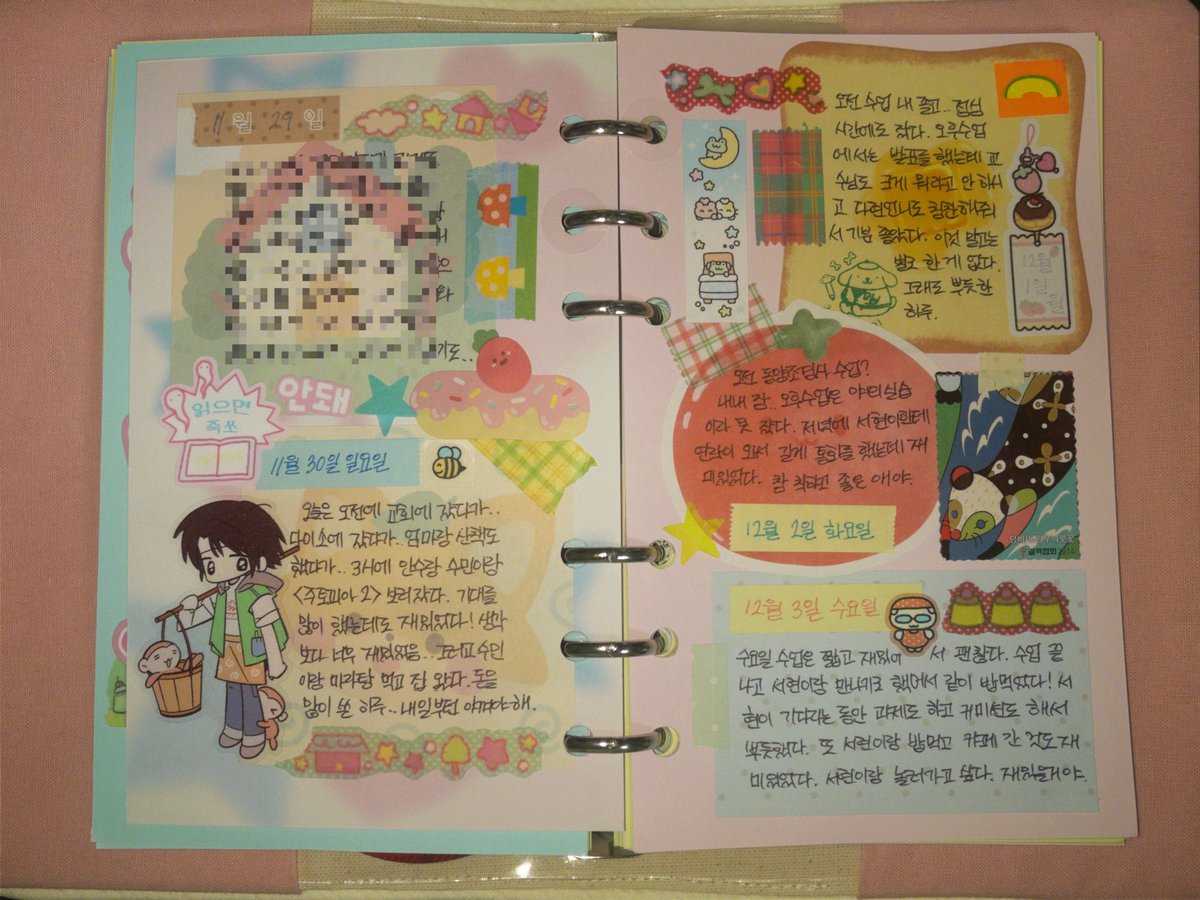 11월 29일
기도..
읽으면
죽쏘
안돼
11월 30일 일요일
오늘은 오전에 교회에 갔다가..
다이소에 갔다가.. 엄마랑 산책도
했다가.. 3시에 안수랑 수민이랑
<주토피아 2> 보러갔다. 기대를
많이 했는데도 재밌었다! 생각
보다 너무 재밌었음.. 그리고 수민
이랑 마라탕 먹고 집 왔다. 돈을
많이 쓴 하루.. 내일부턴 아껴야해.
오전 수업 내 졸고.. 점심
시간에도 잤다. 오후수업
에서는 발표를 했는데 교
수님도 크게 뭐라고 안 하시
고 다련언니도 칭찬해주셔
서 기분 좋았다. 이것 말고는
별로 한 게 없다.
그래도 뿌듯한
하루.
12월
1일
월
오전 동양초답사 수업?
내내 잠.. 오후수업은 야외실습
이라 못 잤다. 저녁에 서현이한테
연락이 와서 길게 통화를 했는데 재
미있었다. 참 착하고 좋은 애야.
12월 2일 화요일
결핵협회 2014
12월 3일 수요일
수요일 수업은 짧고 재밌어서 괜찮다. 수업 끝
나고 서현이랑 만나기로 했어서 같이 밥먹었다! 서
현이 기다리는 동안 과제도 하고 귀미션도 해서
뿌듯했다. 또 서현이랑 밥먹고 카페 간 것도 재
미있었다. 서현이랑 놀러가고 싶다. 재밌을거야.